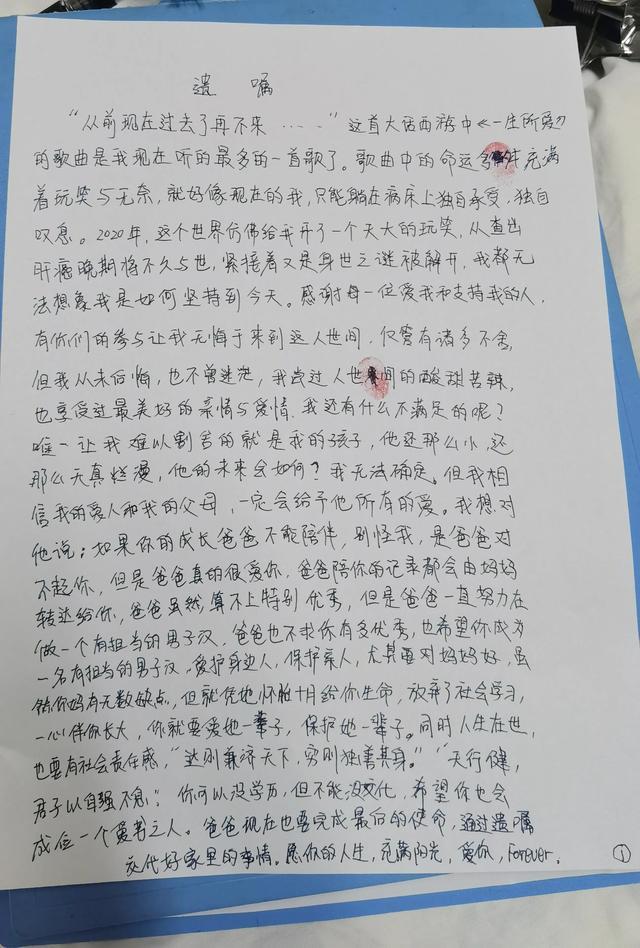 遗 嘱
“从前现在过去了再不来……”这首大话西游中《一生所爱》
的歌曲是我现在听的最多的一首歌了。歌曲中的命运充满
着玩笑与无奈，就好像现在的我，只能躺在病床上独自承受，独自
叹息。2020年，这个世界仿佛给我开了一个天大的玩笑，从查出
肝癌晚期将不久与世，紧接着又是身世之谜被解开，我都无
法想象我是如何坚持到今天。感谢每一位爱我和支持我的人，
有你们的参与让我无悔于来到这人世间，仅管有诸多不舍，
但我从未后悔，也不曾迷茫，我尝过人世间的酸甜苦辣，
也享受过最美好的亲情与爱情，我还有什么不满足的呢？
唯一让我难以割舍的就是我的孩子，他还那么小，还
那么天真烂漫，他的未来会如何？我无法确定。但我相
信我的爱人和我的父母，一定会给予他所有的爱。我想对
他说：如果你的成长爸爸不能陪伴，别怪我，是爸爸对
不起你，但是爸爸真的很爱你，爸爸陪你的记录都会由妈妈
转达给你，爸爸虽然算不上特别优秀，但是爸爸一直努力在
做一个有担当的男子汉，爸爸也不求你有多优秀，也希望你成为
一名有担当的男子汉，爱护身边人，保护亲人，尤其要对妈妈好，虽
然你妈有无数缺点，但就凭她怀胎十月给你生命，放弃了社会学习，
一心伴你长大，你就要爱她一辈子，保护她一辈子。同时人生在世，
也要有社会责任感，“达则兼济天下，穷则独善其身。”“天行健，
君子以自强不息”。你可以没学历，但不能没文化，希望你也会
成位一个爱书之人。爸爸现在也要完成最后的使命，通过遗嘱
交代好家里的事情。愿你的人生，充满阳光，爱你，Forever.
①